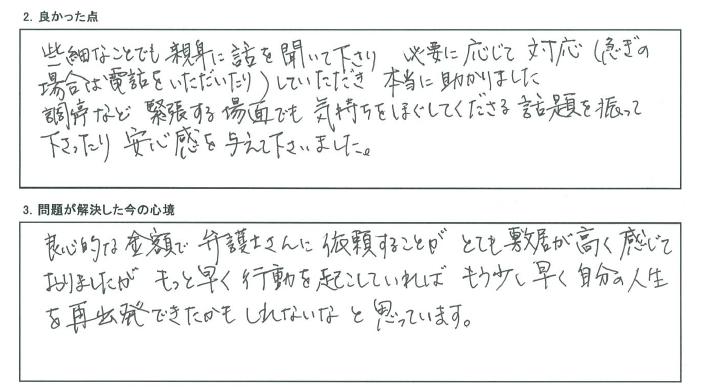 2. 良かった点
些細なことでも親身に話を聞いて下さり 必要に応じて対応(急ぎの
場合は電話をいただいたり)していただき 本当に助かりました
調停など 緊張する場面でも 気持ちをほぐしてくださる 話題を振って
下さったり 安心感を与えて下さいました。
3. 問題が解決した今の心境
良心的な金額で 弁護士さんに 依頼することが とても敷居が高く感じて
おりましたが もっと早く行動を起こしていれば もう少し早く自分の人生
を再出発できたかもしれないなと思っています。